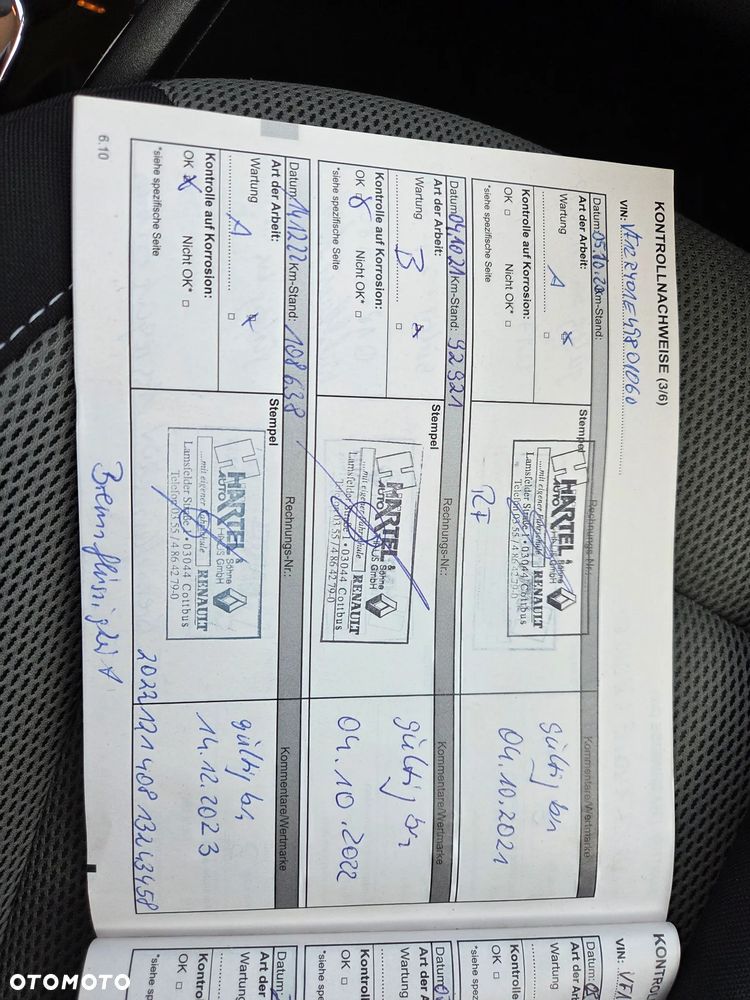 KONTROLLNACHWEISE (3/6)
VIN:
Datum: 05.10.20 Km-Stand:
Rechnungs-Nr.:
Kommentare/Wertmarke
Art der Arbeit:
Wartung A
Kontrolle auf Korrosion:
OK □ Nicht OK* □
*siehe spezifische Seite
Stempel
HÄRTEL
AUTO HAUS
& Söhne GmbH
...mit eigener Fahrschule
RENAULT
Lamsfelder Straße 1 • 03044 Cottbus
Telefon 03 55 / 4 86 42 79-0
gültig bis
04.10.2021
Datum: 04.10.21 Km-Stand: 92921
Rechnungs-Nr.:
Kommentare/Wertmarke
Art der Arbeit:
Wartung B
Kontrolle auf Korrosion:
OK Nicht OK* □
*siehe spezifische Seite
Stempel
HÄRTEL
AUTO HAUS
& Söhne GmbH
...mit eigener Fahrschule
RENAULT
Lamsfelder Straße 1 • 03044 Cottbus
Telefon 03 55 / 4 86 42 79-0
gültig bis
04.10.2022
Datum: 14.12.22 Km-Stand: 108638
Rechnungs-Nr.:
Kommentare/Wertmarke
Art der Arbeit:
Wartung A
Kontrolle auf Korrosion:
OK Nicht OK* □
*siehe spezifische Seite
Stempel
HÄRTEL
AUTO HAUS
& Söhne GmbH
...mit eigener Fahrschule
RENAULT
Lamsfelder Straße 1 • 03044 Cottbus
Telefon 03 55 / 4 86 42 79-0
gültig bis
14.12.2023
20221214081 3243458
6.10
KONTRO
VIN:
Datum:
Art der A
Wartung
Kontrol
OK □
*siehe spe
Datum:
Art der A
Wartung
Kontro
OK □
*siehe spe
Datum:
Art der
Wartun
Kontro
OK □
*siehe s
OTOMOTO